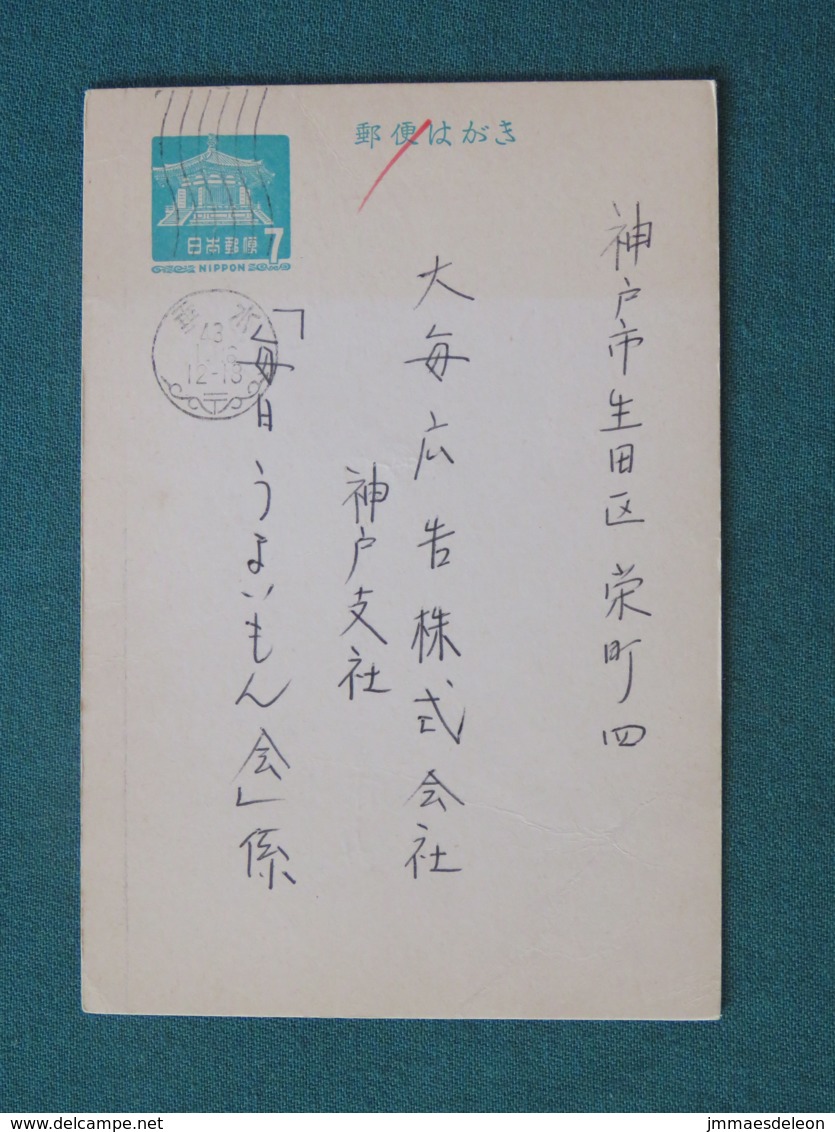 郵便はがき
日本郵便
7
NIPPON
垂水
43
12-18
神戸市生田区栄町四
大毎広告株式会社
神戸支社
「毎日うまいもん会」係
delcampe.net
jmmaesdeleon